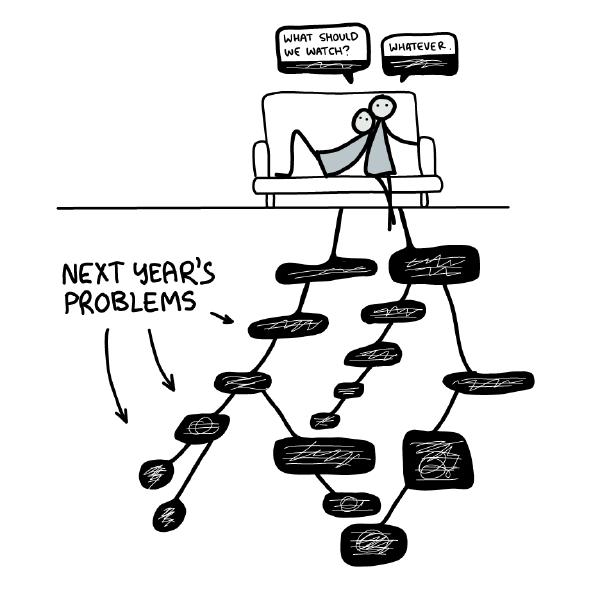 WHAT SHOULD
WE WATCH?
WHATEVER.
NEXT YEAR'S
PROBLEMS